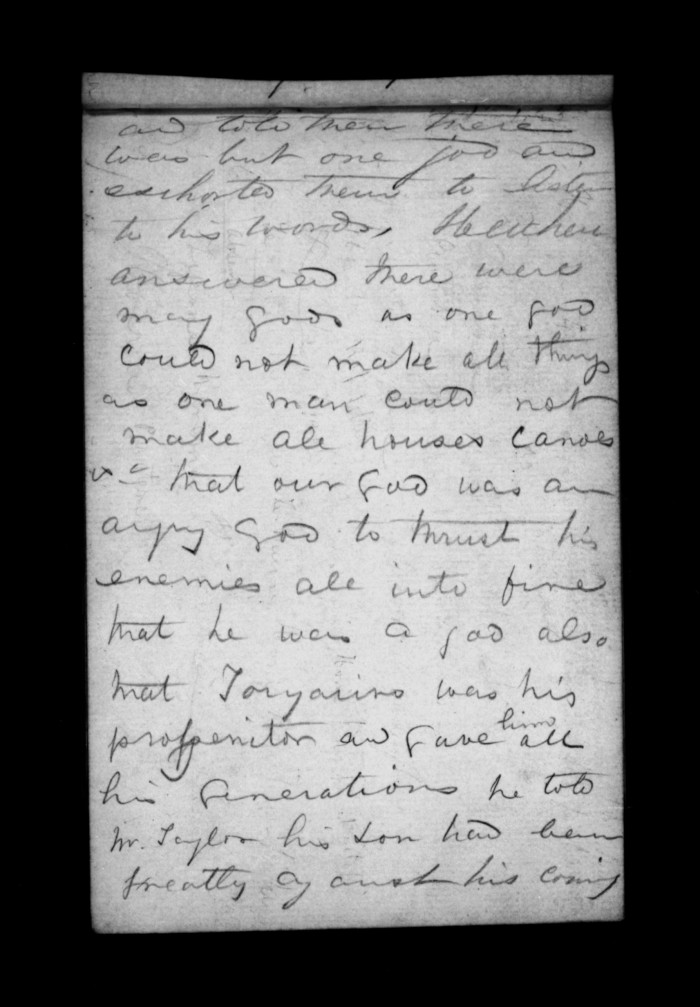 and told them there
was but one god and
exhorted them to listen
to his words, Heuheu
answered there were
many gods as one god
could not make all things
as one man could not
make all houses canoes
&c that our God was an
angry God to thrust his
enemies all into fire
that he was a god also
that was his
progenitor and gave him all
his generations he told
Mr. Taylor his Son had been
greatly against his coming